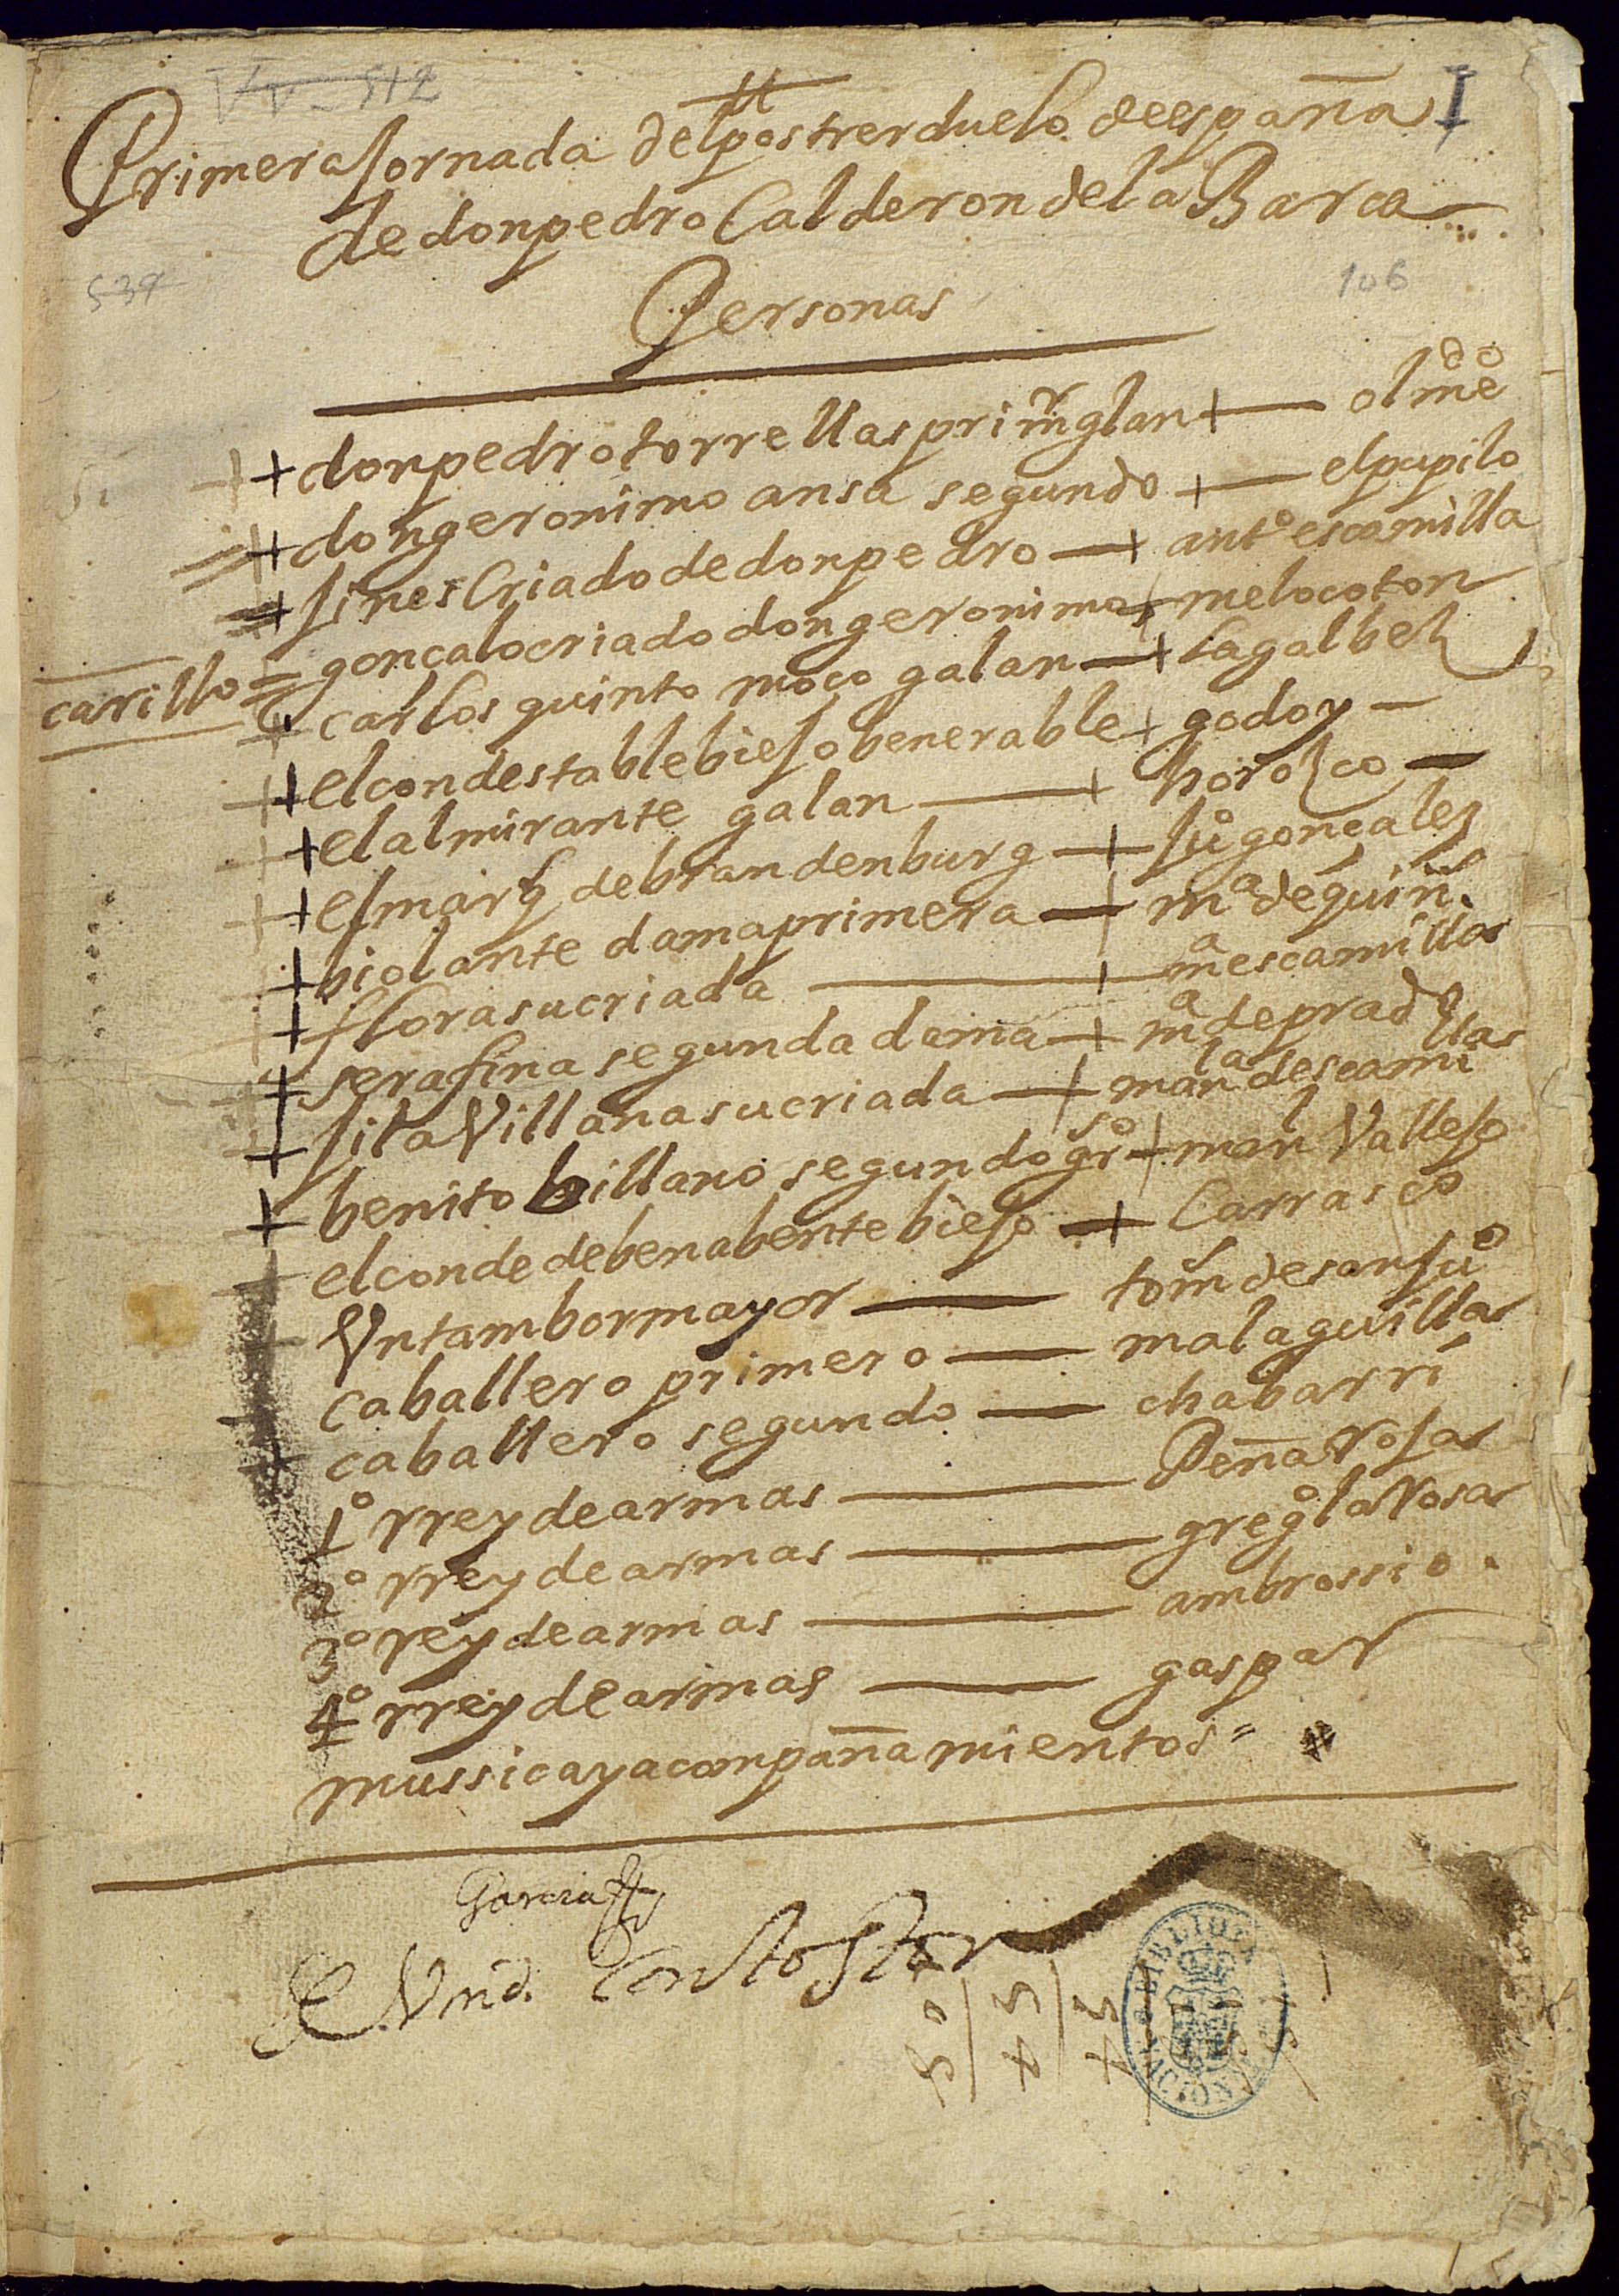 Vv-512
Primera Jornada del postrer duelo de españa I
de don pedro Calderon de la Barca
539 106
Personas
don pedro torrellas primr glan — olmdo
don geronimo ansa segundo — el pupilo
Jines Criado de don pedro — anto escamilla
gonçalo criado don geronimo melocoton
carillo
carlos quinto moço galan — sagalbez
el condestable biejo benerable godoy —
el almirante galan — horozco —
el marqs de brandenburg — Juo gonçalez
biolante dama primera — ma de quiñs.
flora su criada — ma escamilla
serafina segunda dama — ma de prado
Jila Villana su criada — manla descamillas
benito billano segundo grso — manl Vallejo
el conde de benabente biejo — Carrasco
Un tambor mayor — tom de san Juo
caballero primero — malaguilla
caballero segundo — chabarri
1o rrey de armas — Peña Roja
2o rrey de armas — grego la Rosa
3o rey de armas — ambrossio.
4o rrey de armas — gaspar
mussica y aconpañamientos =
Garcia
BIBLIOTECA NACIONAL